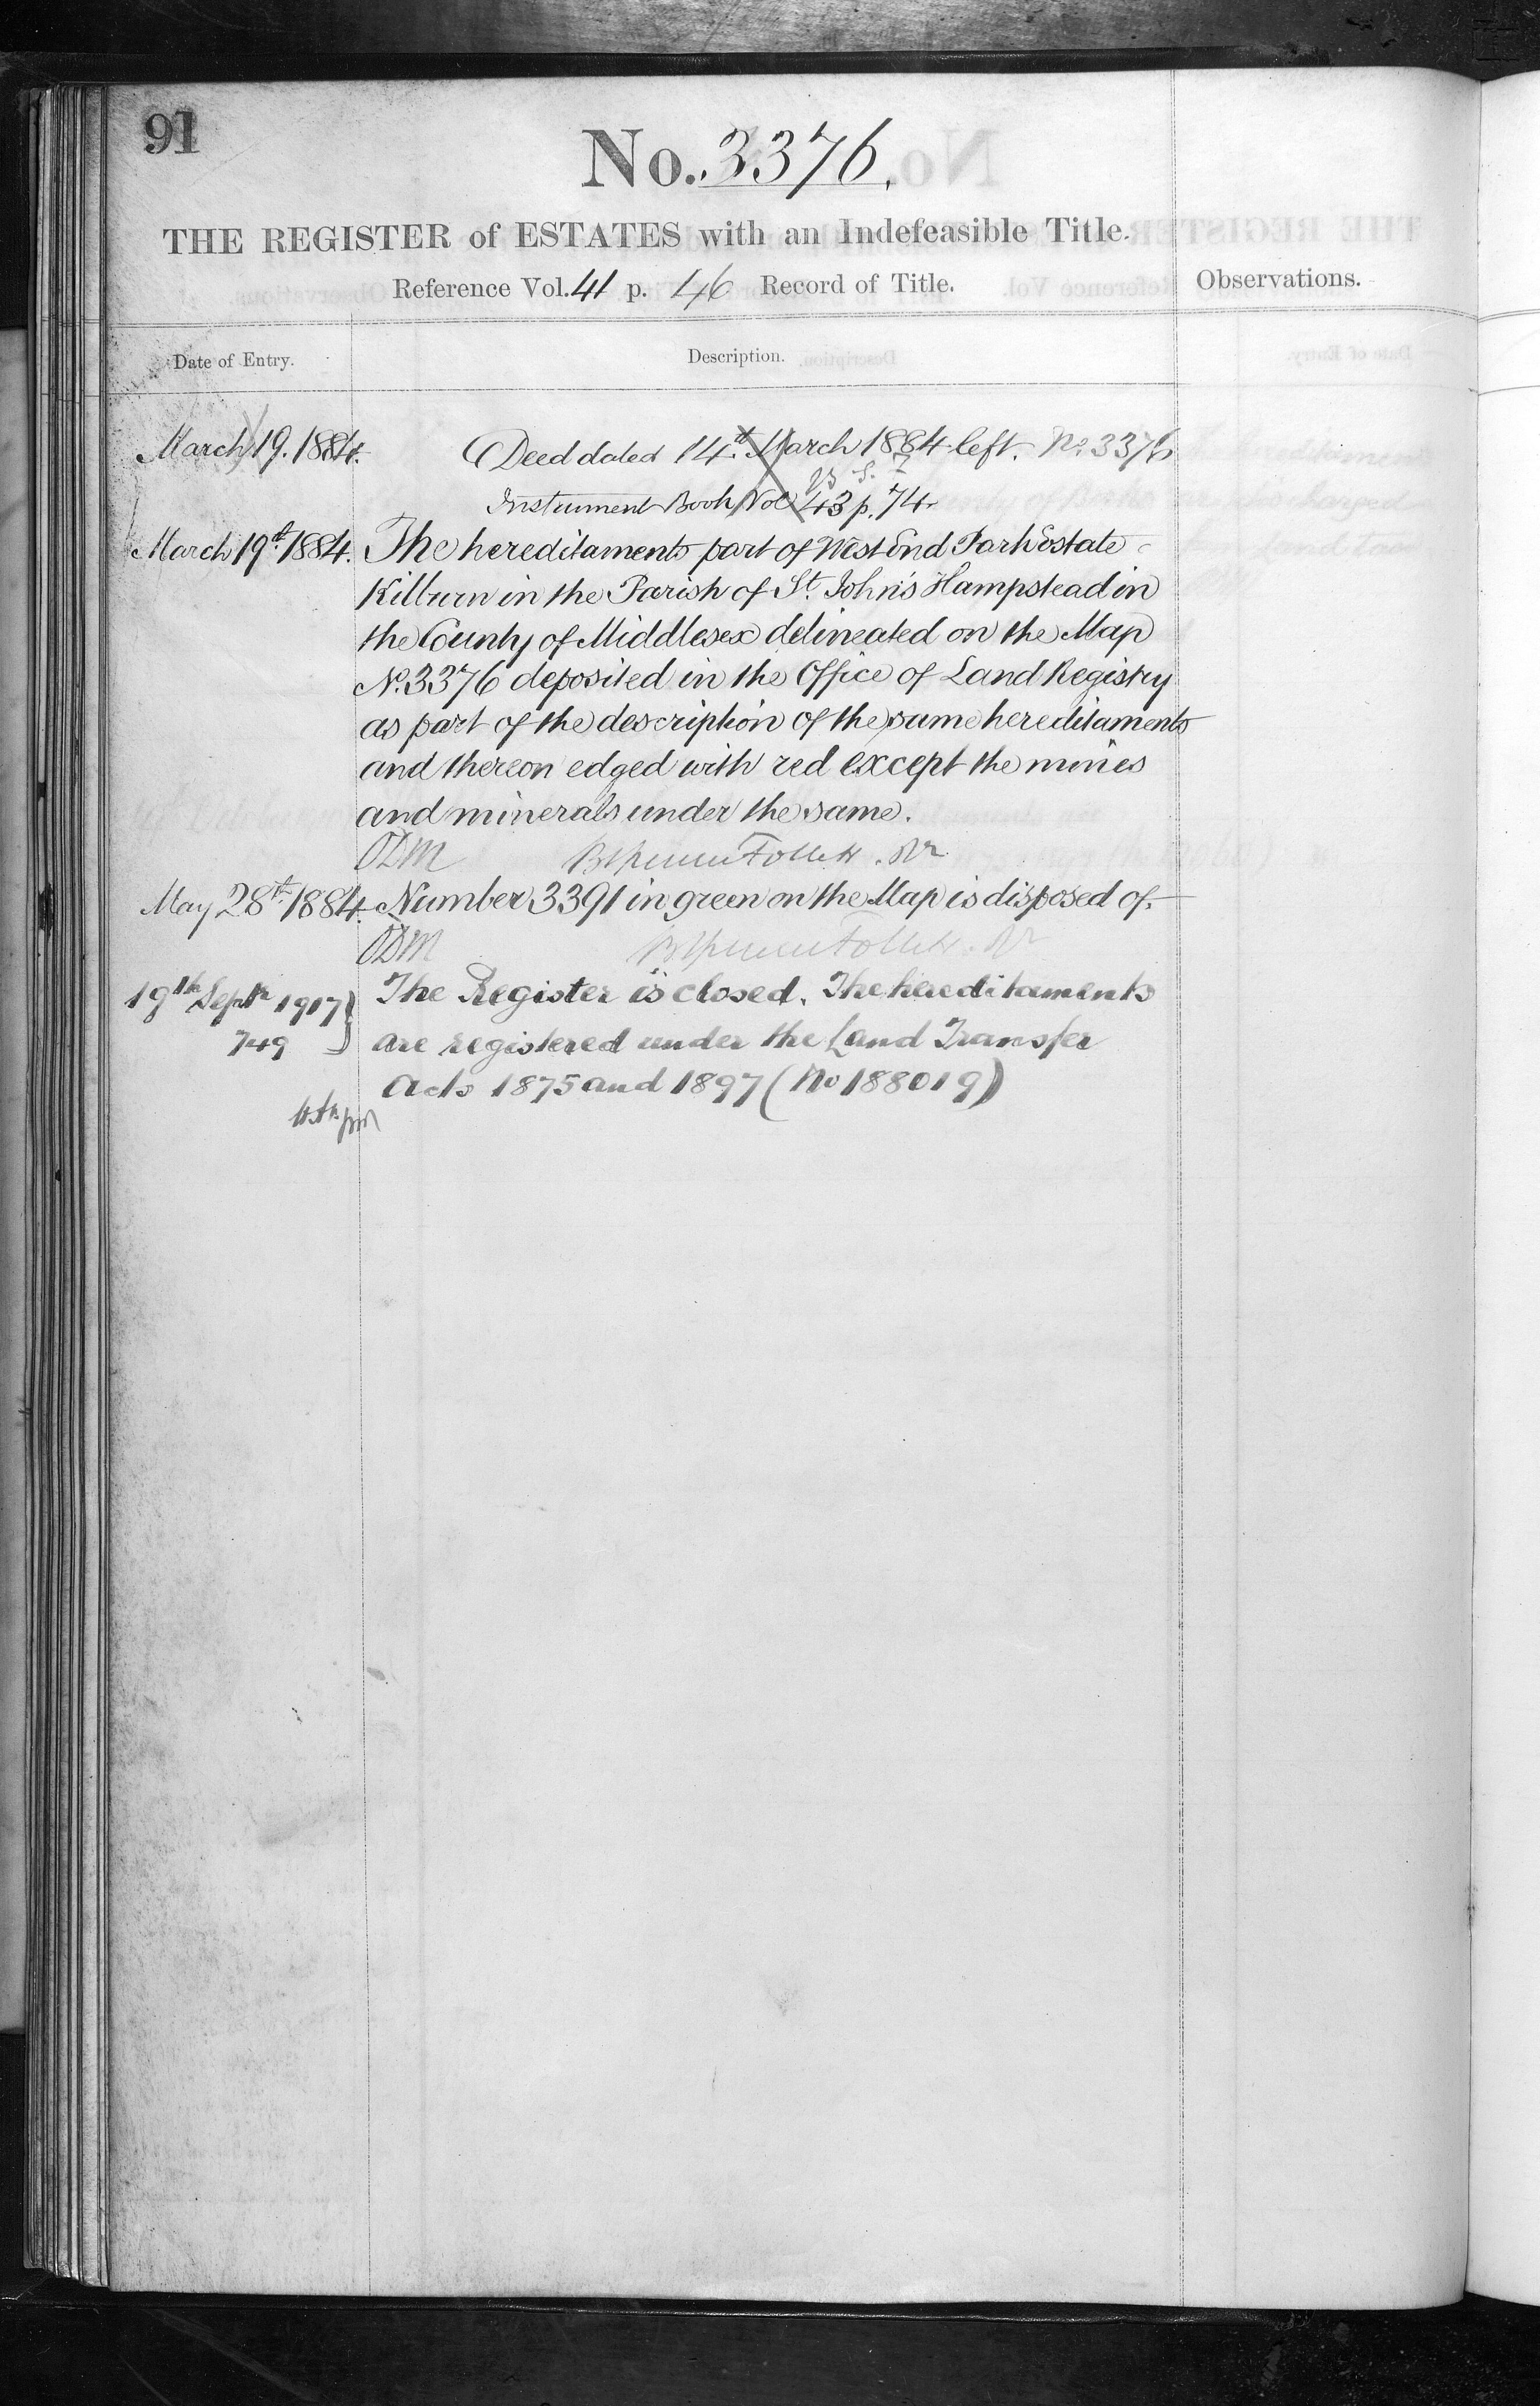 91
No. 3376.
THE REGISTER of ESTATES with an Indefeasible Title.
Reference Vol. 41 p. 46 Record of Title.
Observations.
Date of Entry.
Description.
March 19. 1884. Deed dated 14th March 1884 left. No. 3376
Instrument Book Vol 43 p. 74
March 19th 1884. The hereditaments part of West End Park Estate
Kilburn in the Parish of St. John's Hampstead in
the County of Middlesex delineated on the Map
No. 3376 deposited in the Office of Land Registry
as part of the description of the same hereditaments
and thereon edged with red except the mines
and minerals under the same.
ODM
May 28th 1884. Number 3391 in green on the Map is disposed of.
ODM
19th Septr 1917 The Register is closed. The hereditaments
749 are registered under the Land Transfer
Acts 1875 and 1897 (No 188019)